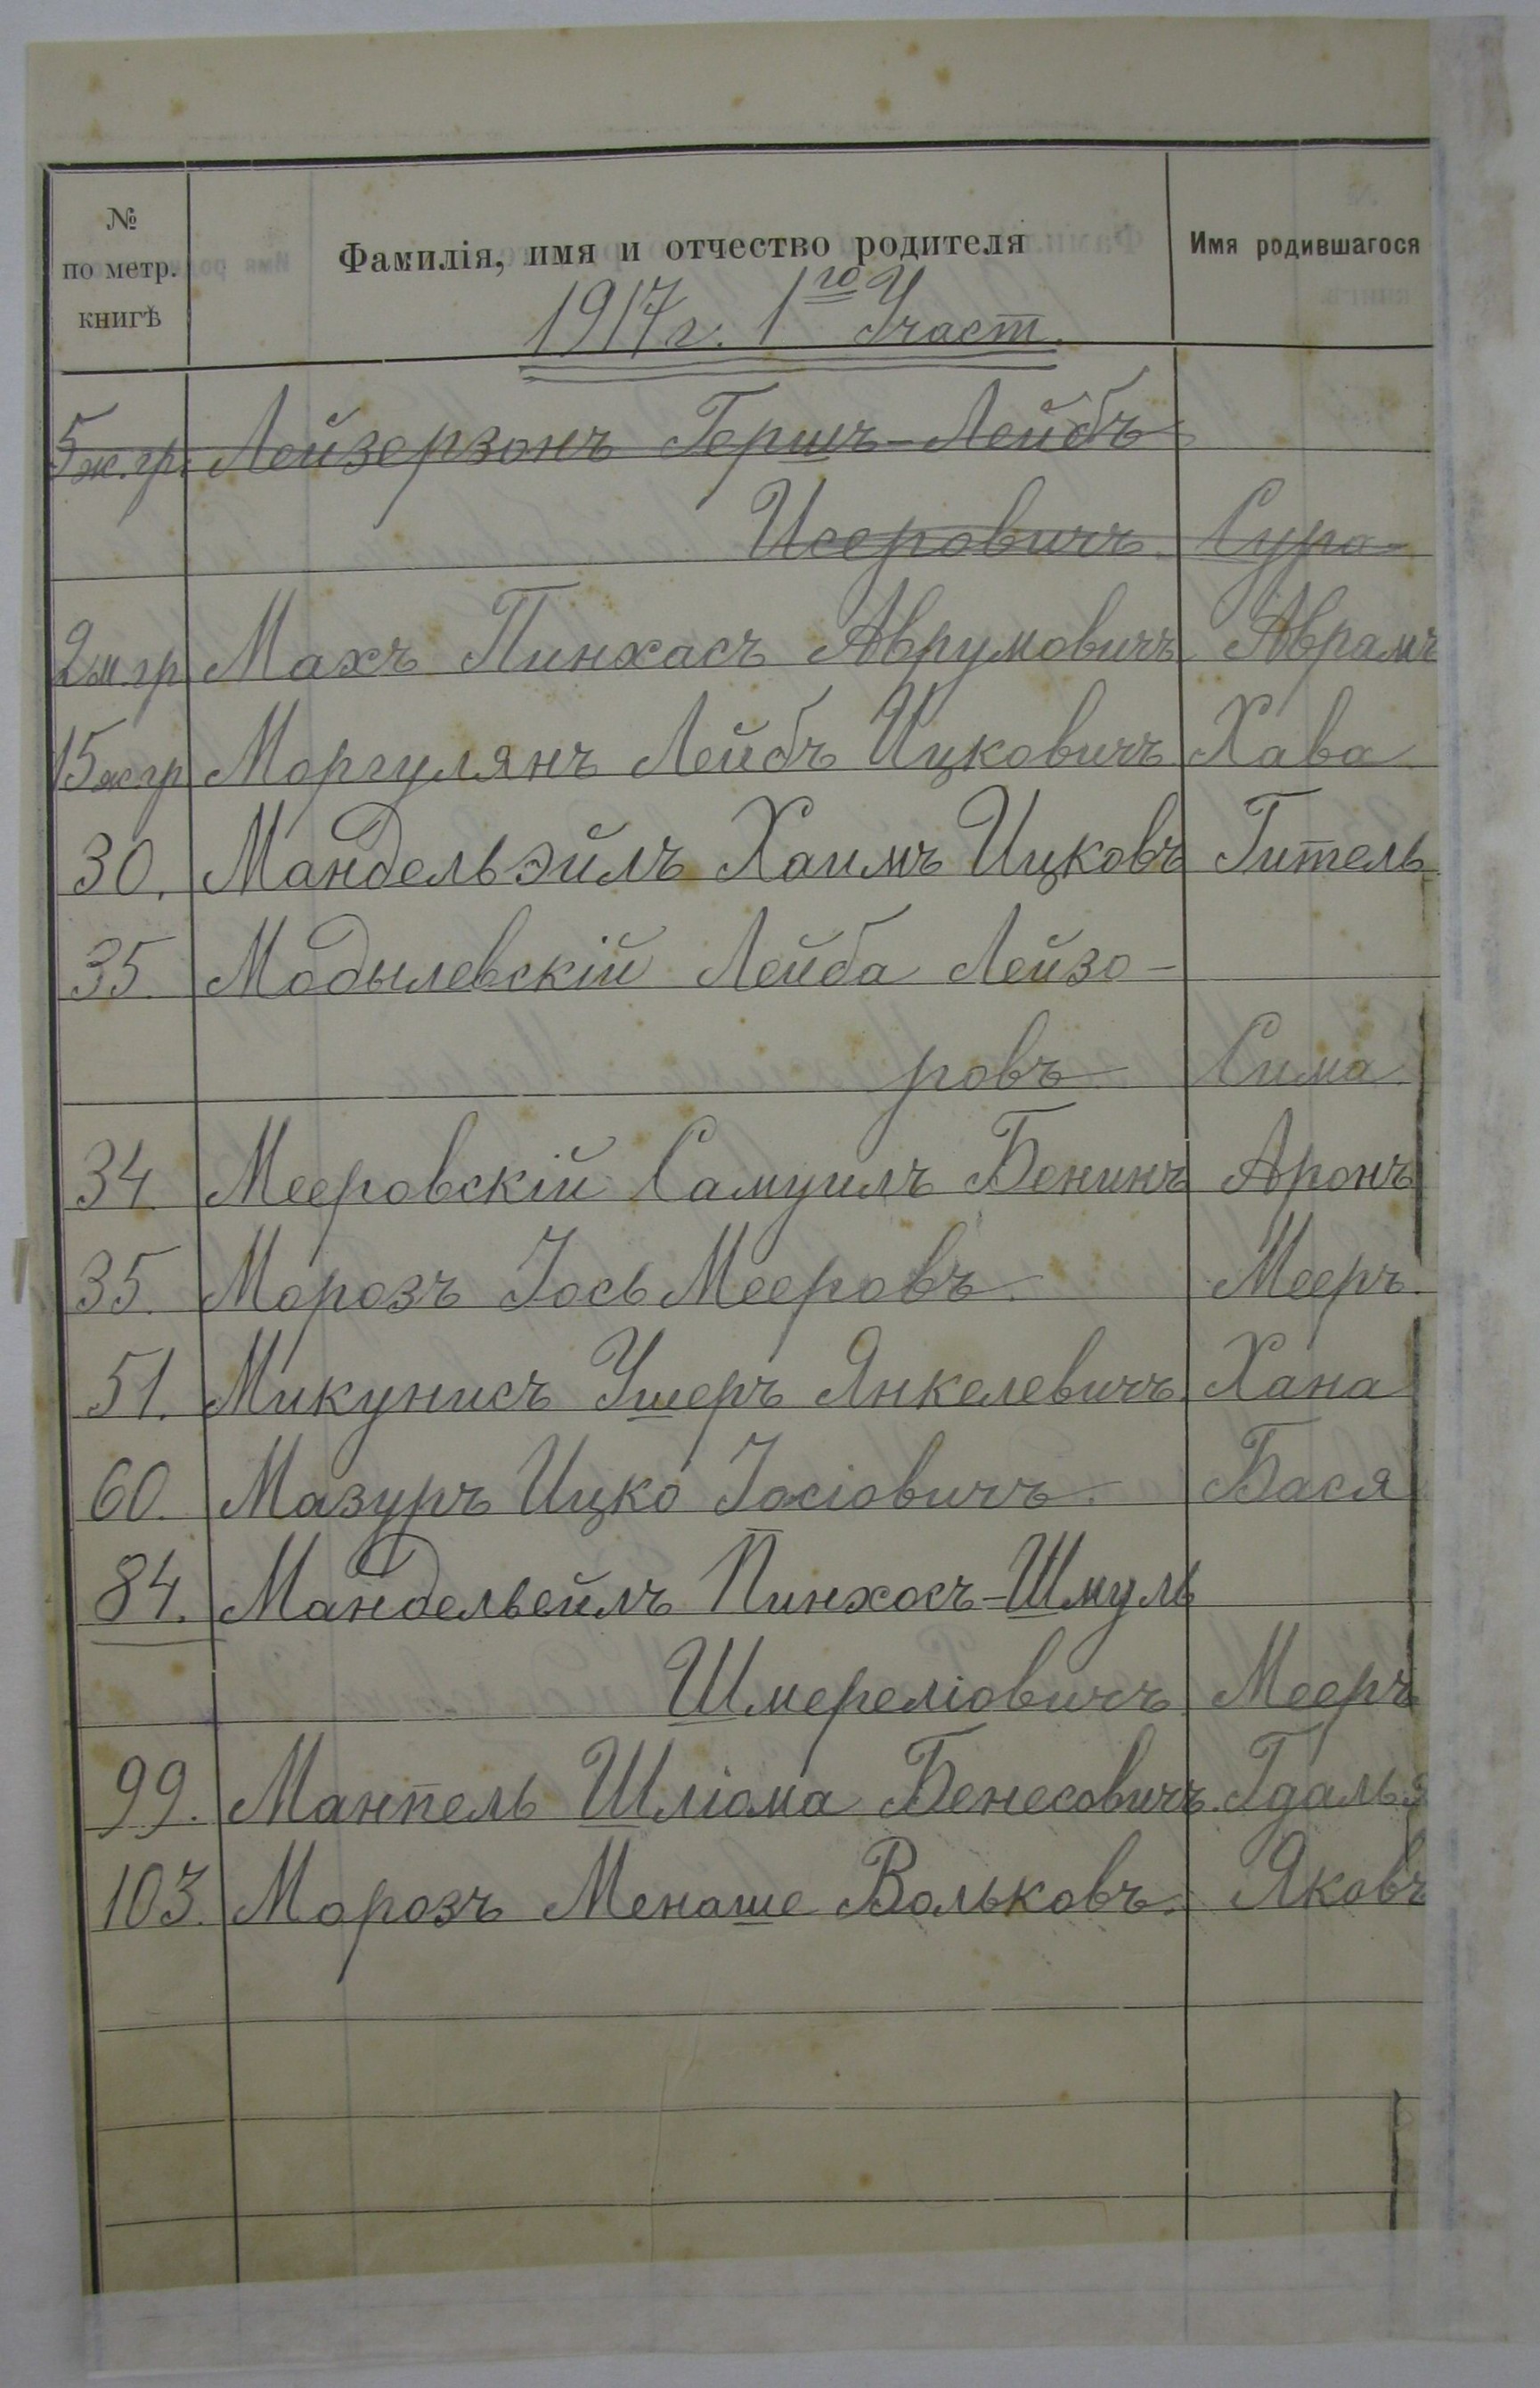 № по метр. книгѣ Фамилія, имя и отчество родителя Имя родившагося
1917 г. 1го Участ.
5 ж. гр. Лейзерзонъ Гершъ-Лейбъ
Исеровичъ. Сура
2 м. гр Махъ Пинхасъ Аврумовичъ. Аврамъ
15 ж. гр Моргулянъ Лейбъ Ицковичъ Хава
30. Мандельэйлъ Хаимъ Ицковъ Гитель
35. Модылевскій Лейба Лейзо-
ровъ Сима.
34 Мееровскій Самуилъ Бенинъ Аронъ
35. Морозъ Іось Мееровъ. Мееръ.
51. Микунисъ Ушеръ Янкелевичъ. Хана
60. Мазуръ Ицко Іосіовичъ. Бася
84. Мандельвейлъ Пинхосъ-Шмуль
Шмереліовичъ Мееръ
99. Манпель Шліома Бенесовичъ. Гдалья
103. Морозъ Менаше Вольковъ. Яковъ